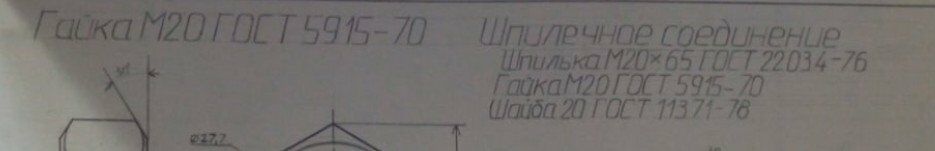 Гайка М20 ГОСТ 5915-70
Шпилечное соединение
Шпилька М20×65 ГОСТ 22034-76
Гайка М20 ГОСТ 5915-70
Шайба 20 ГОСТ 11371-78
⌀27,7